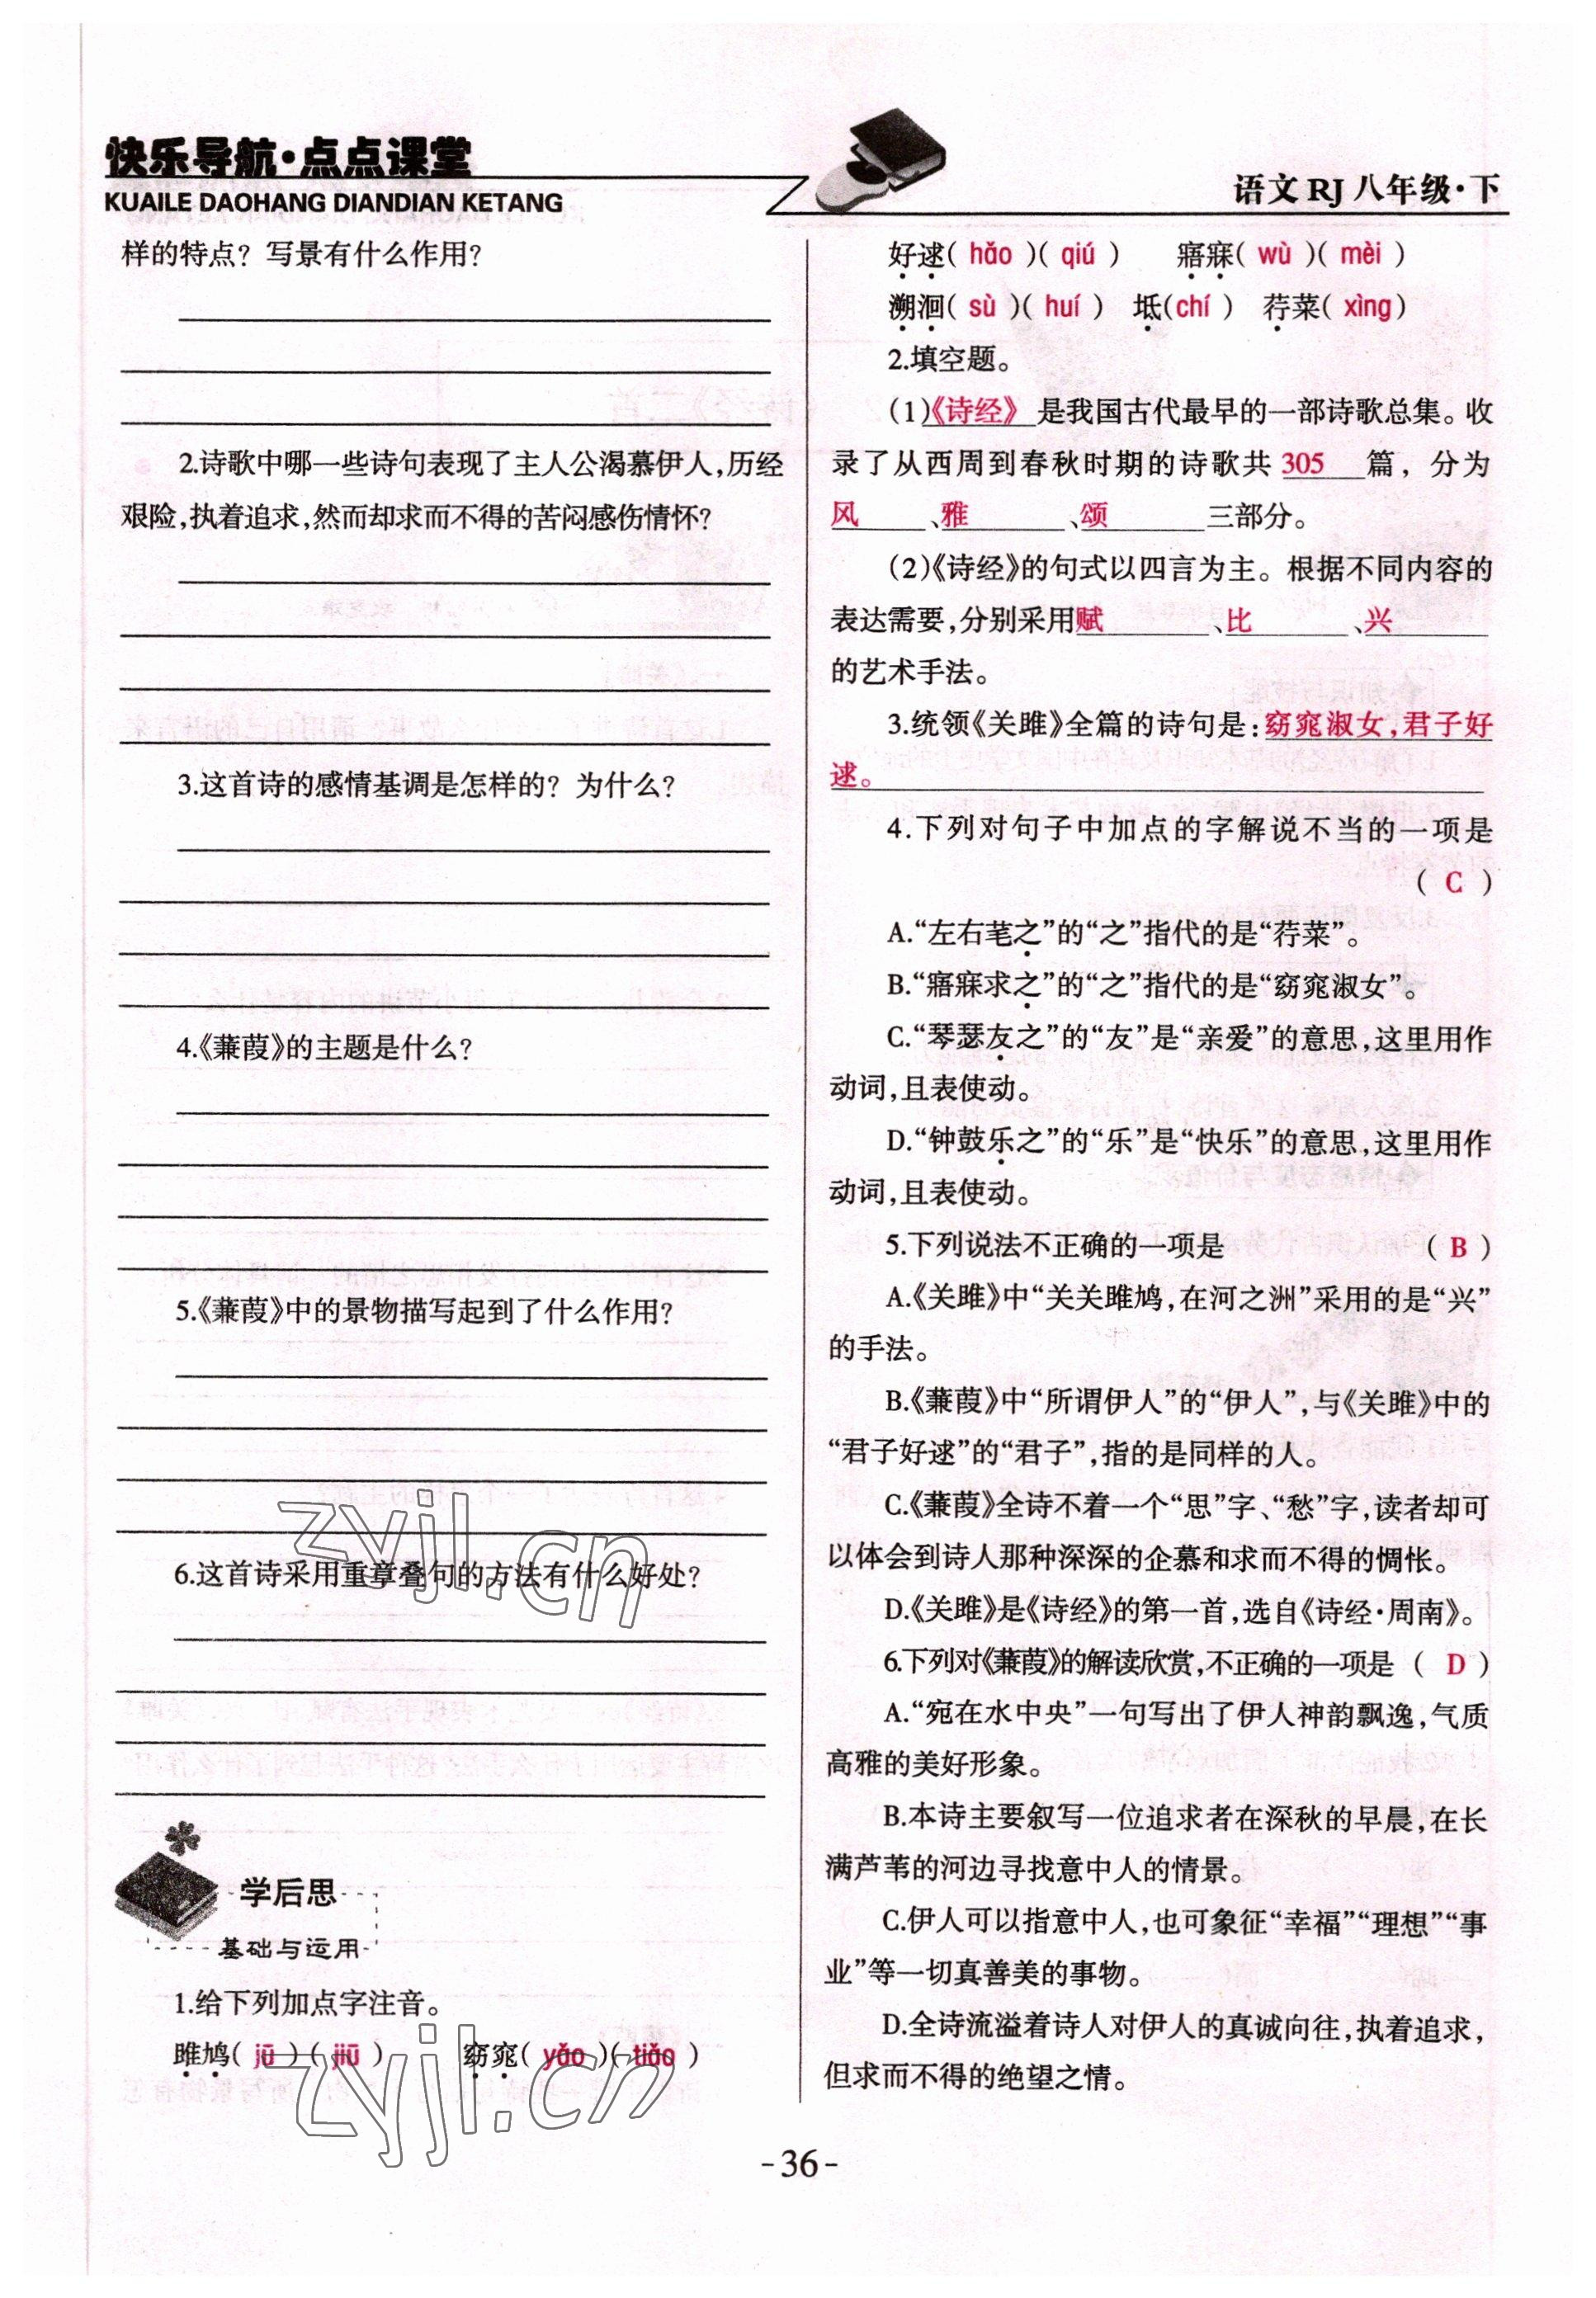 快乐导航·点点课堂
KUAILE DAOHANG DIANDIAN KETANG
语文 RJ 八年级·下
样的特点？写景有什么作用？
2.诗歌中哪一些诗句表现了主人公渴慕伊人,历经
艰险,执着追求,然而却求而不得的苦闷感伤情怀？
3.这首诗的感情基调是怎样的？为什么？
4.《蒹葭》的主题是什么？
5.《蒹葭》中的景物描写起到了什么作用？
6.这首诗采用重章叠句的方法有什么好处？
zyjl.cn
学后思
基础与运用
1.给下列加点字注音。
雎鸠( jū )( jiū ) 窈窕( yǎo )( tiǎo )
zyjl.cn
好逑( hǎo )( qiú ) 寤寐( wù )( mèi )
溯洄( sù )( huí ) 坻(chí ) 荇菜( xìng )
2.填空题。
(1)《诗经》是我国古代最早的一部诗歌总集。收
录了从西周到春秋时期的诗歌共 305 篇，分为
风、雅、颂三部分。
(2)《诗经》的句式以四言为主。根据不同内容的
表达需要,分别采用赋、比、兴
的艺术手法。
3.统领《关雎》全篇的诗句是：窈窕淑女,君子好
逑。
4.下列对句子中加点的字解说不当的一项是
( C )
A.“左右芼之”的“之”指代的是“荇菜”。
B.“寤寐求之”的“之”指代的是“窈窕淑女”。
C.“琴瑟友之”的“友”是“亲爱”的意思,这里用作
动词,且表使动。
D.“钟鼓乐之”的“乐”是“快乐”的意思,这里用作
动词,且表使动。
5.下列说法不正确的一项是 ( B )
A.《关雎》中“关关雎鸠,在河之洲”采用的是“兴”
的手法。
B.《蒹葭》中“所谓伊人”的“伊人”,与《关雎》中的
“君子好逑”的“君子”,指的是同样的人。
C.《蒹葭》全诗不着一个“思”字、“愁”字,读者却可
以体会到诗人那种深深的企慕和求而不得的惆怅。
D.《关雎》是《诗经》的第一首,选自《诗经·周南》。
6.下列对《蒹葭》的解读欣赏,不正确的一项是 ( D )
A.“宛在水中央”一句写出了伊人神韵飘逸,气质
高雅的美好形象。
B.本诗主要叙写一位追求者在深秋的早晨,在长
满芦苇的河边寻找意中人的情景。
C.伊人可以指意中人,也可象征“幸福”“理想”“事
业”等一切真善美的事物。
D.全诗流溢着诗人对伊人的真诚向往,执着追求,
但求而不得的绝望之情。
-36-